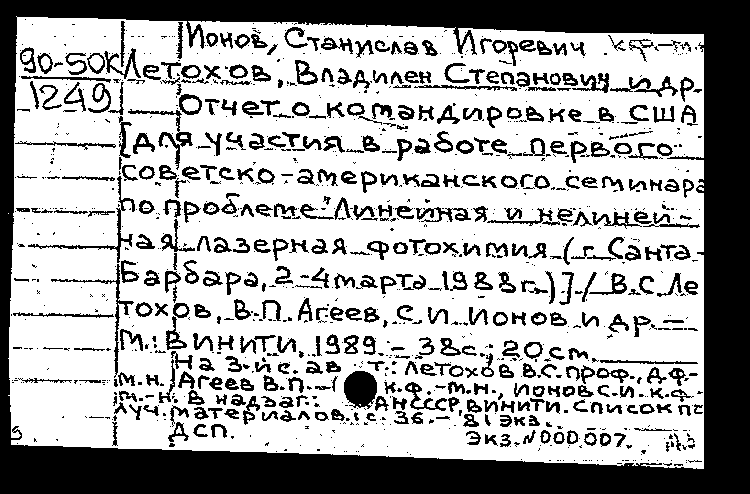 Ионов, Станислав Игоревич к.ф.-м.н
90-50К
1249
Летохов, Владилен Степанович и др.
Отчет о командировке в США
[для участия в работе первого
советско-американского семинара
по проблеме "Линейная и нелиней-
ная лазерная фотохимия (г. Санта-
Барбара, 2-4 марта 1988г.)] / В.С. Ле
тохов, В.П. Агеев, С.И. Ионов и др. -
М.: ВИНИТИ, 1989. - 38с.; 20 см.
На 3-й с. ав т.: Летохов В.С. проф., д.ф-
м.н., Агеев В.П. - к.ф.-м.н., Ионов С.И. к.ф.-
м.-н. В надзаг.: АН СССР, ВИНИТИ. Список по
луч. материалов: с. 36. - 81 экз.
ДСП. Экз. N 000.007.